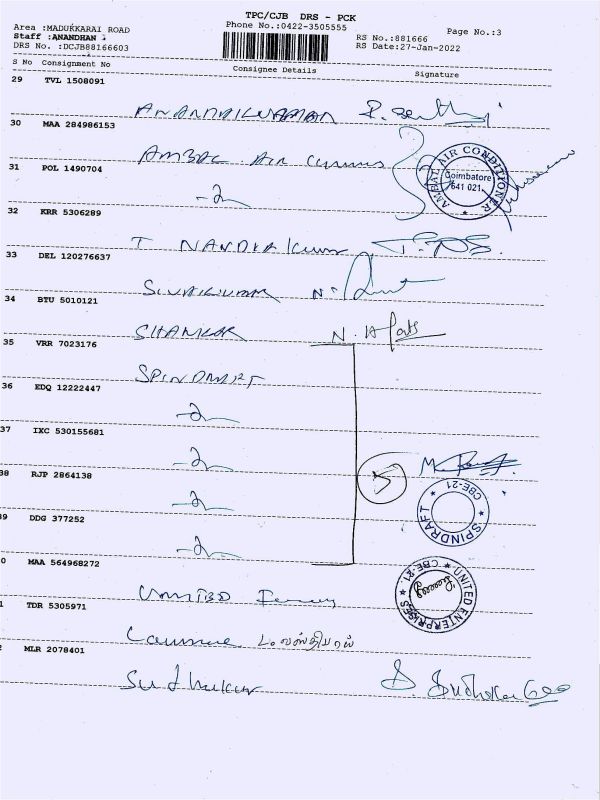 TPC/CJB DRS - PCK
Area :MADUKKARAI ROAD
Phone No.:0422-3505555
Page No.:3
Staff :ANANDHAN
RS No.:881666
DRS No. :DCJB88166603
RS Date:27-Jan-2022
S No Consignment No Consignee Details Signature
29 TVL 1508091
ANANDHAKUMAR
30 MAA 284986153
AMBAL AIR
AMBAL AIR CONDITIONER
Coimbatore
641 021
31 POL 1490704
32 KRR 5306289
T NANDHAKUMAR
33 DEL 120276637
SIVAKUMAR N.
34 BTU 5010121
SHANKAR N.
35 VRR 7023176
SPINDRIFT
36 EDQ 12222447
37 IXC 530155681
5
38 RJP 2864138
SPINDRAFT
CBE-21
39 DDG 377252
0 MAA 564968272
UNITED
UNITED ENTERPRISES
CBE-21
1 TDR 5305971
2 MLR 2078401
Sudhakar S. Sudhakar